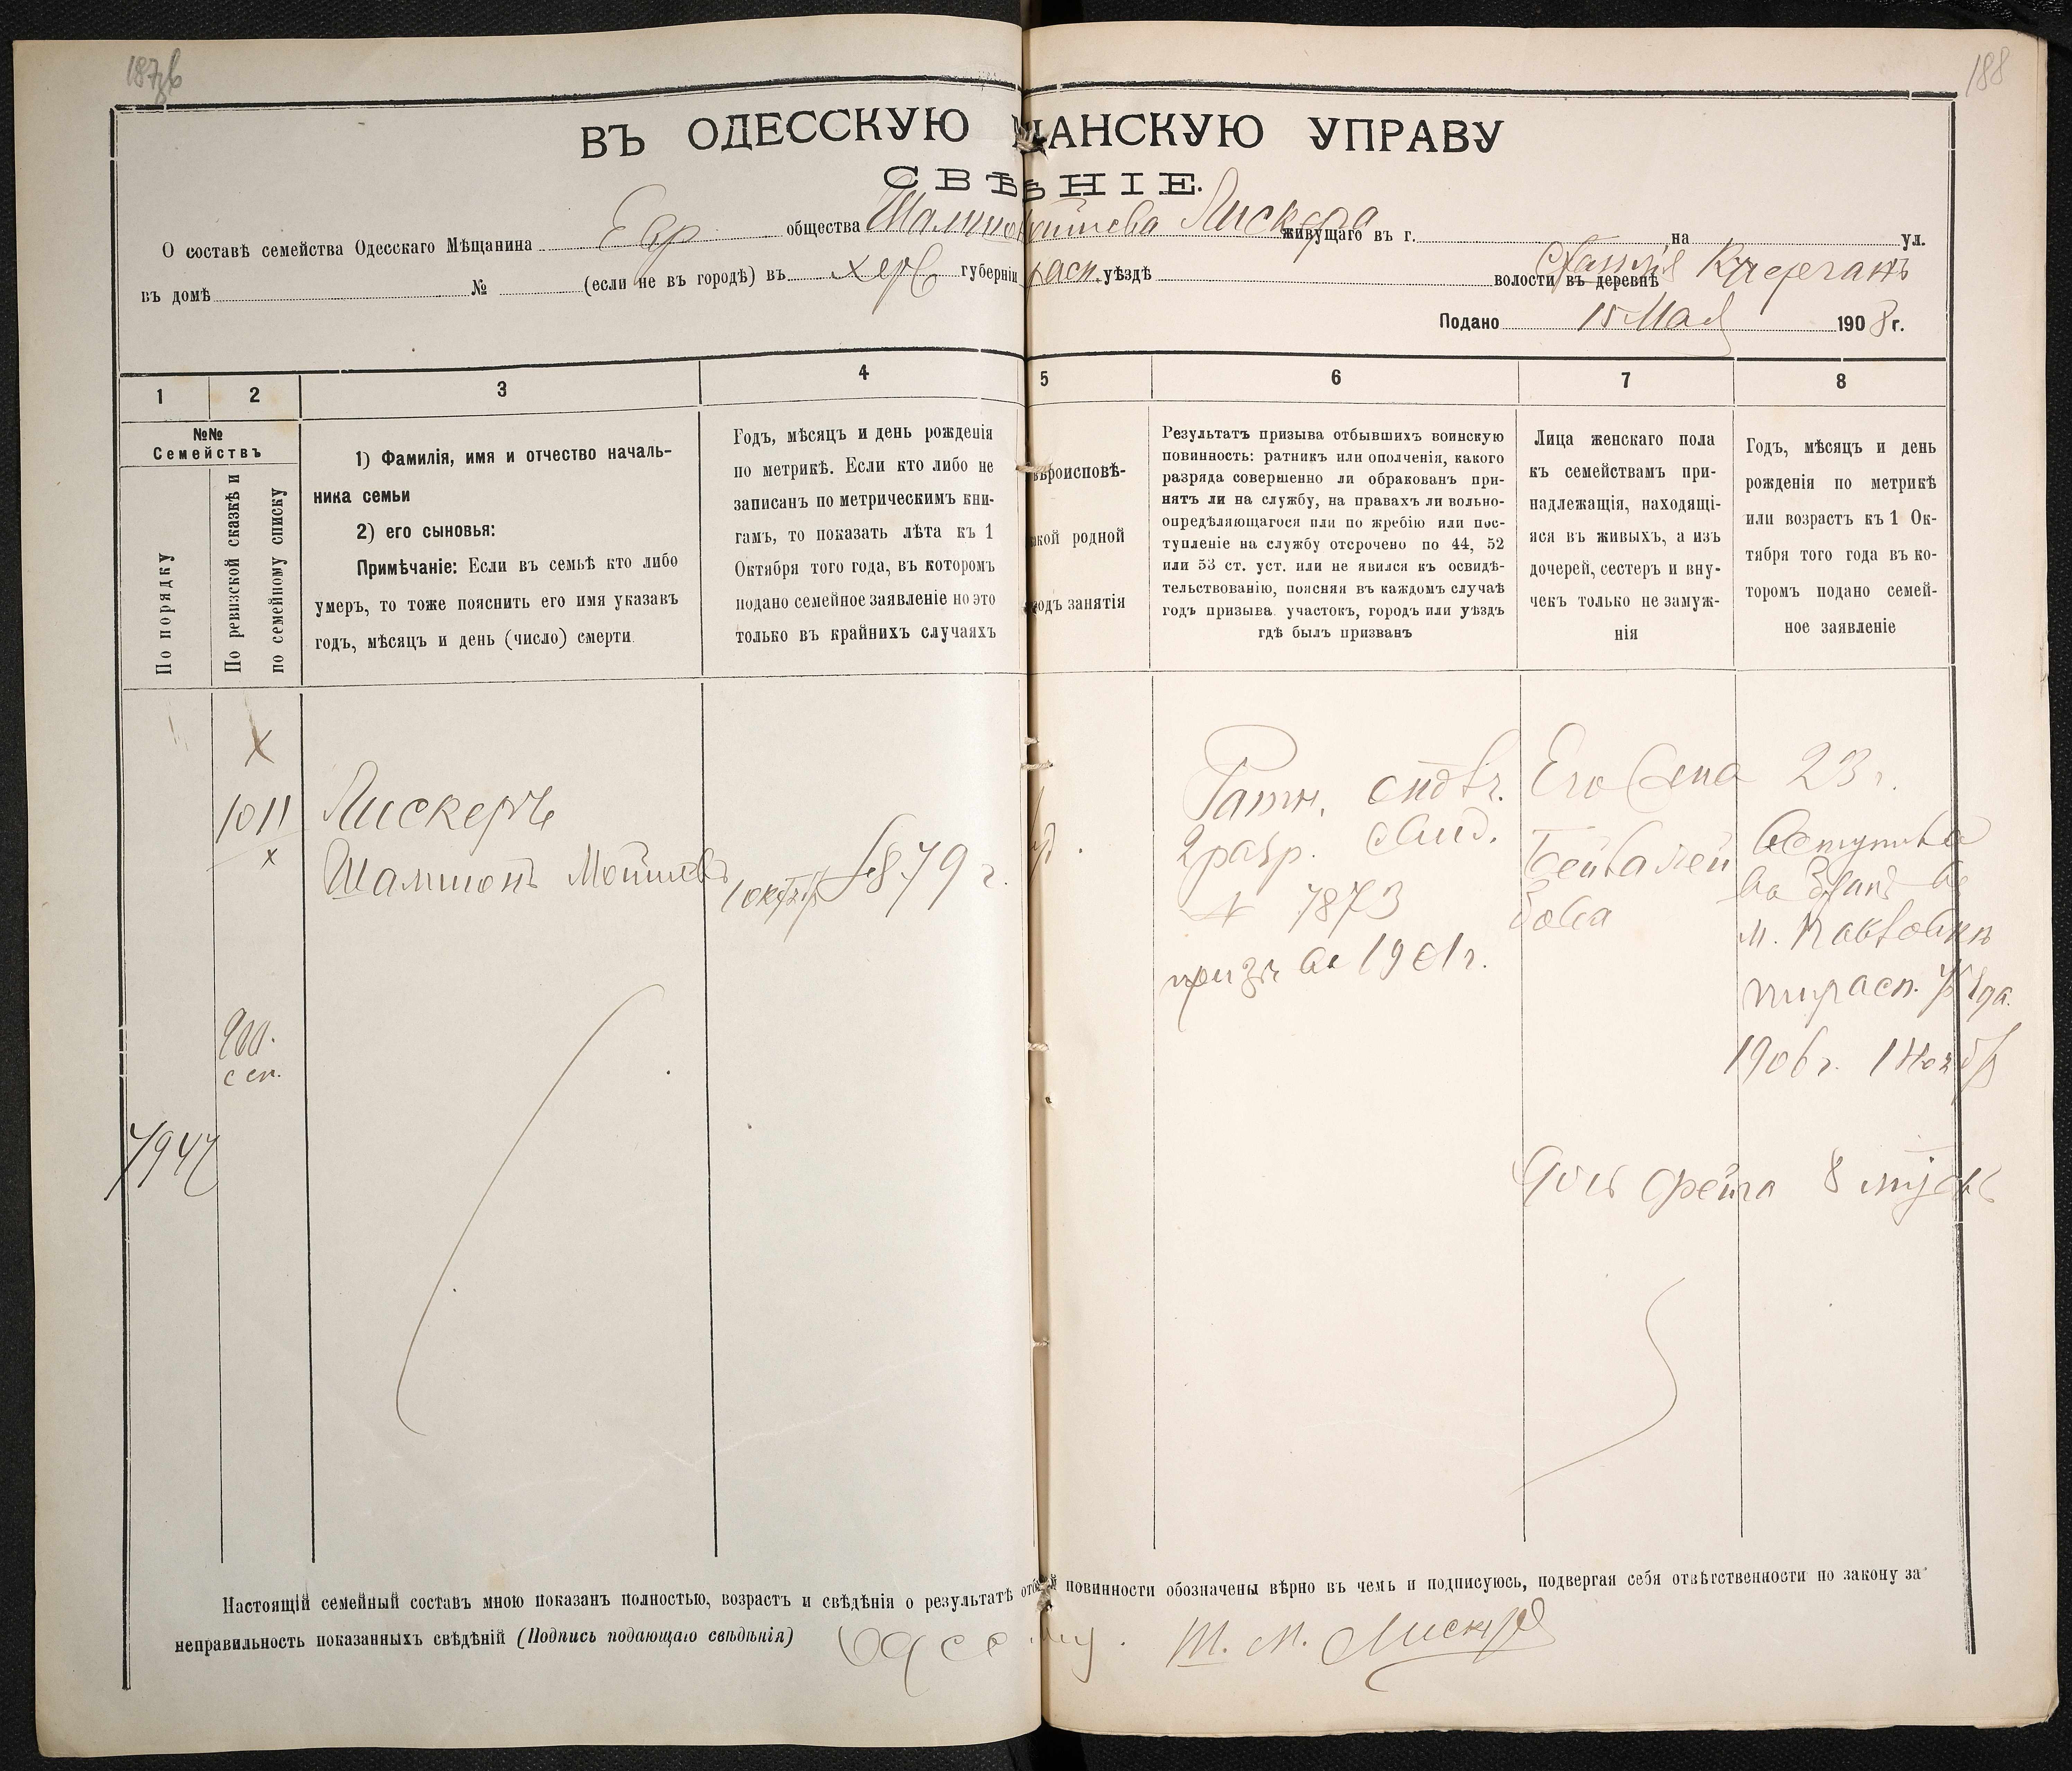 188
ВЪ ОДЕССКУЮ ЩАНСКУЮ УПРАВУ
СВѢ НІЕ.
О составѣ семейства Одесскаго Мѣщанина Евр общества Шамшо Лискера живущаго въ г. на ул.
въ домѣ № (если не въ городѣ) въ Херс губерніи расп. уѣздѣ волости въ деревнѣ Кучурганъ
Подано 15 Мая 1908 г.
1 2 3 4 5 6 7 8
№№ Семействъ
По порядку
По ревизской сказкѣ и по семейному списку
1) Фамилія, имя и отчество началь-
ника семьи
2) его сыновья:
Примѣчаніе: Если въ семьѣ кто либо
умеръ, то тоже пояснить его имя указавъ
годъ, мѣсяцъ и день (число) смерти.
Годъ, мѣсяцъ и день рожденія
по метрикѣ. Если кто либо не
записанъ по метрическимъ кни-
гамъ, то показать лѣта къ 1
Октября того года, въ которомъ
подано семейное заявленіе но это
только въ крайнихъ случаяхъ
вѣроисповѣ-
акой родной
одъ занятія
Результатъ призыва отбывшихъ воинскую
повинность: ратникъ или ополченія, какого
разряда совершенно ли обракованъ при-
нятъ ли на службу, на правахъ ли вольно-
опредѣляющагося или по жребію или пос-
тупленіе на службу отсрочено по 44, 52
или 53 ст. уст. или не явился къ освидѣ-
тельствованію, поясняя въ каждомъ случаѣ
годъ призыва. участокъ, городъ или уѣздъ
гдѣ былъ призванъ
Лица женскаго пола
къ семействамъ при-
надлежащія, находящі-
яся въ живыхъ, а изъ
дочерей, сестеръ и вну-
чекъ только не замуж-
нія
Годъ, мѣсяцъ и день
рожденія по метрикѣ
или возрастъ къ 1 Ок-
тября того года въ ко-
торомъ подано семей-
ное заявленіе
х
1011
х
Лискеръ
Шамшонъ Мойшевъ
1 октября 1879 г.
Ратн.
2 разр. свид.
№ 7873
призв. въ 1901 г.
Его жена
23 г.
вступила
въ бракъ въ
м. Павловкѣ
тирасп. уѣзда.
1906 г. 1 Ноября
с сп.
7947
Дочь Фейга 8 мѣсяц
Настоящій семейный составъ мною показанъ полностью, возрастъ и свѣдѣнія о результатѣ отб й повинности обозначены вѣрно въ чемъ и подписуюсь, подвергая себя отвѣтственности по закону за
неправильность показанныхъ свѣдѣній (Подпись подающаго свѣдѣнія) Ш. М. Лискеръ